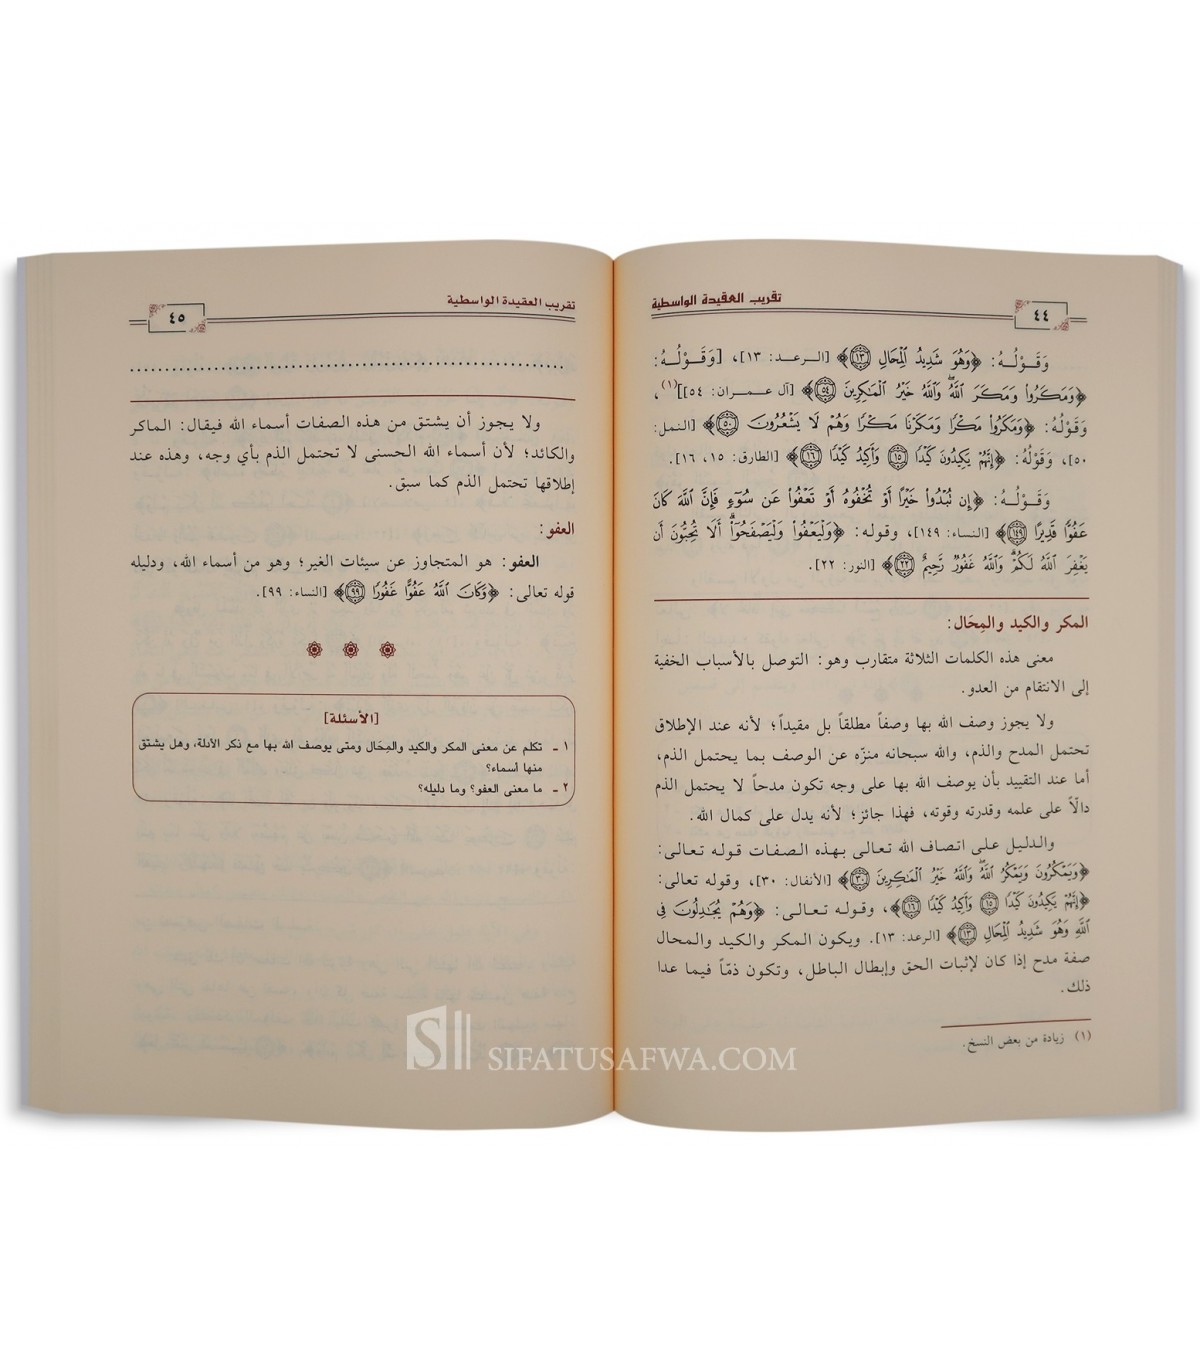 ٤٤
تقريب العقيدة الواسطية
وَقَـوْلُـهُ: ﴿وَهُوَ شَدِيدُ ٱلْمِحَالِ ۝١٣﴾ [الـرعـد: ١٣]، [وَقَـوْلُـهُ:
﴿وَمَكَرُوا۟ وَمَكَرَ ٱللَّهُ ۖ وَٱللَّهُ خَيْرُ ٱلْمَـٰكِرِينَ ۝٥٤﴾ [آل عـمـران: ٥٤]](١)،
وَقَوْلُهُ: ﴿وَمَكَرُوا۟ مَكْرًا وَمَكَرْنَا مَكْرًا وَهُمْ لَا يَشْعُرُونَ ۝٥٠﴾ [النمل:
٥٠]، وَقَوْلُهُ: ﴿إِنَّهُمْ يَكِيدُونَ كَيْدًا ۝١٥ وَأَكِيدُ كَيْدًا ۝١٦﴾ [الطارق: ١٥، ١٦].
وَقَـوْلُـهُ: ﴿إِن تُبْدُوا۟ خَيْرًا أَوْ تُخْفُوهُ أَوْ تَعْفُوا۟ عَن سُوٓءٍ فَإِنَّ ٱللَّهَ كَانَ
عَفُوًّا قَدِيرًا ۝١٤٩﴾ [النساء: ١٤٩]، وقوله: ﴿وَلْيَعْفُوا۟ وَلْيَصْفَحُوٓا۟ ۗ أَلَا تُحِبُّونَ أَن
يَغْفِرَ ٱللَّهُ لَكُمْ ۗ وَٱللَّهُ غَفُورٌ رَّحِيمٌ ۝٢٢﴾ [النور: ٢٢].
المكر والكيد والمِحَال:
معنى هذه الكلمات الثلاثة متقارب وهو: التوصل بالأسباب الخفية
إلى الانتقام من العدو.
ولا يجوز وصف الله بها وصفاً مطلقاً بل مقيداً؛ لأنه عند الإطلاق
تحتمل المدح والذم، والله سبحانه منزّه عن الوصف بما يحتمل الذم،
أما عند التقييد بأن يوصف الله بها على وجه تكون مدحاً لا يحتمل الذم
دالّاً على علمه وقدرته وقوته، فهذا جائز؛ لأنه يدل على كمال الله.
والدليل على اتصاف الله تعالى بهذه الصفات قوله تعالى:
﴿وَيَمْكُرُونَ وَيَمْكُرُ ٱللَّهُ ۖ وَٱللَّهُ خَيْرُ ٱلْمَـٰكِرِينَ ۝٣٠﴾ [الأنفال: ٣٠]، وقوله تعالى:
﴿إِنَّهُمْ يَكِيدُونَ كَيْدًا ۝١٥ وَأَكِيدُ كَيْدًا ۝١٦﴾، وقوله تعالى: ﴿وَهُمْ يُجَـٰدِلُونَ فِى
ٱللَّهِ وَهُوَ شَدِيدُ ٱلْمِحَالِ ۝١٣﴾ [الرعد: ١٣]. ويكون المكر والكيد والمحال
صفة مدح إذا كان لإثبات الحق وإبطال الباطل، وتكون ذمّاً فيما عدا
ذلك.
(١) زيادة من بعض النسخ.
تقريب العقيدة الواسطية
٤٥
................................................
ولا يجوز أن يشتق من هذه الصفات أسماء الله فيقال: الماكر
والكائد؛ لأن أسماء الله الحسنى لا تحتمل الذم بأي وجه، وهذه عند
إطلاقها تحتمل الذم كما سبق.
العفو:
العفو: هو المتجاوز عن سيئات الغير؛ وهو من أسماء الله، ودليله
قوله تعالى: ﴿وَكَانَ ٱللَّهُ عَفُوًّا غَفُورًا ۝٩٩﴾ [النساء: ٩٩].
[الأسئلة]
١ ـ تكلم عن معنى المكر والكيد والمِحَال ومتى يوصف الله بها مع ذكر الأدلة، وهل يشتق
منها أسماء؟
٢ ـ ما معنى العفو؟ وما دليله؟
S SIFATUSAFWA.COM